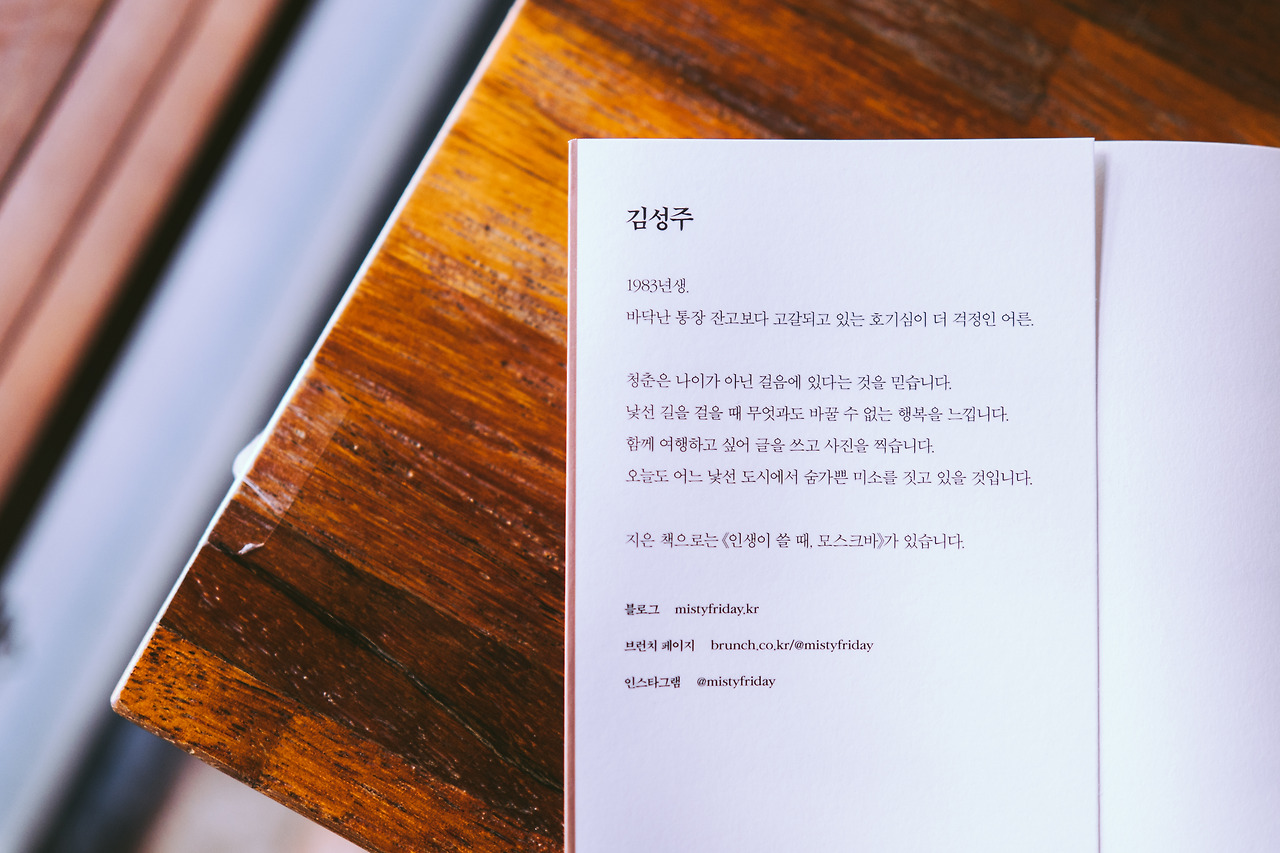 김성주
1983년생.
바닥난 통장 잔고보다 고갈되고 있는 호기심이 더 걱정인 어른.
청춘은 나이가 아닌 걸음에 있다는 것을 믿습니다.
낯선 길을 걸을 때 무엇과도 바꿀 수 없는 행복을 느낍니다.
함께 여행하고 싶어 글을 쓰고 사진을 찍습니다.
오늘도 어느 낯선 도시에서 숨가쁜 미소를 짓고 있을 것입니다.
지은 책으로는 《인생이 쓸 때, 모스크바》가 있습니다.
블로그 mistyfriday.kr
브런치 페이지 brunch.co.kr/@mistyfriday
인스타그램 @mistyfriday